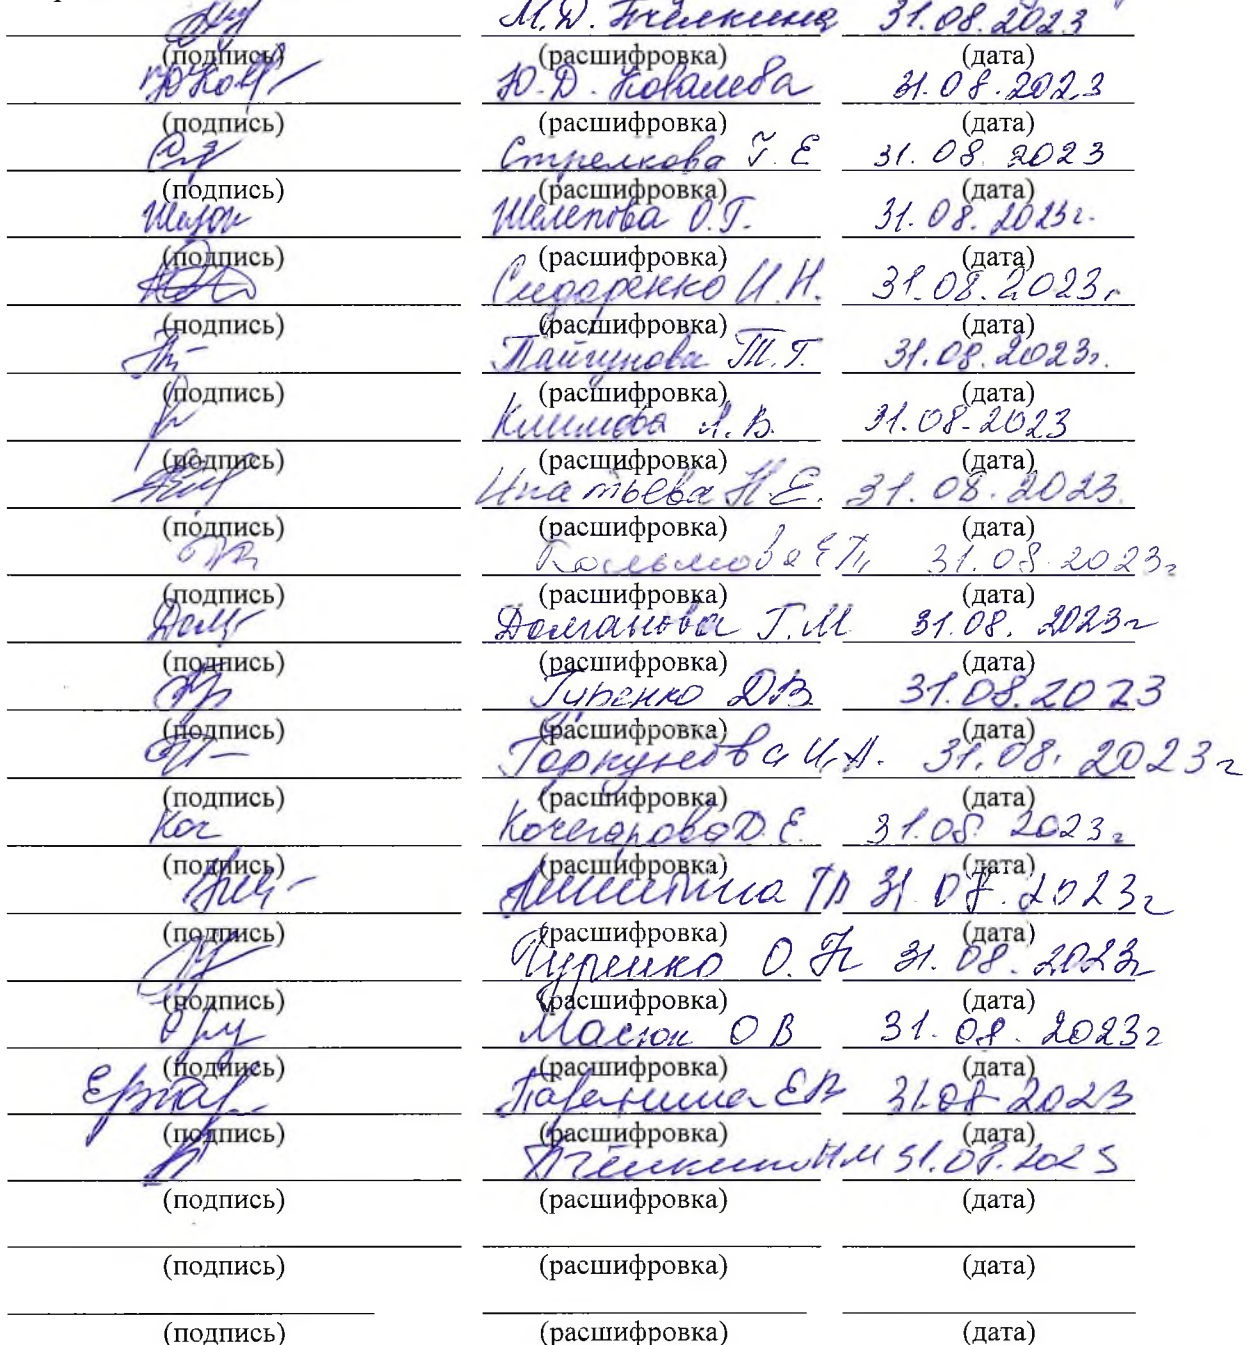 М.Д. Пчёлкина 31.08.2023
(подпись) (расшифровка) (дата)
Ю.Д. Ковалева 31.08.2023
(подпись) (расшифровка) (дата)
Стрелкова Г.Е 31.08.2023
(подпись) (расшифровка) (дата)
Шелепова О.Г. 31.08.2023г.
(подпись) (расшифровка) (дата)
Сидаренко И.Н. 31.08.2023г
(подпись) (расшифровка) (дата)
Т.Г. 31.08.2023г.
(подпись) (расшифровка) (дата)
Климова А.В. 31.08.2023
(подпись) (расшифровка) (дата)
Игнатьева Н.Е. 31.08.2023
(подпись) (расшифровка) (дата)
31.08.2023г
(подпись) (расшифровка) (дата)
Долганова Г.М 31.08.2023г
(подпись) (расшифровка) (дата)
Гуренко Д.В. 31.08.2023
(подпись) (расшифровка) (дата)
Горкунова И.А. 31.08.2023г
(подпись) (расшифровка) (дата)
Коч Кочегарова Д.Е. 31.08 2023г
(подпись) (расшифровка) (дата)
31.08.2023г
(подпись) (расшифровка) (дата)
Гуренко О.Н 31.08.2023г
(подпись) (расшифровка) (дата)
Масюк О В 31.08.2023г
(подпись) (расшифровка) (дата)
ЕВ 31.08 2023
(подпись) (расшифровка) (дата)
31.08.2023
(подпись) (расшифровка) (дата)
(подпись) (расшифровка) (дата)
(подпись) (расшифровка) (дата)